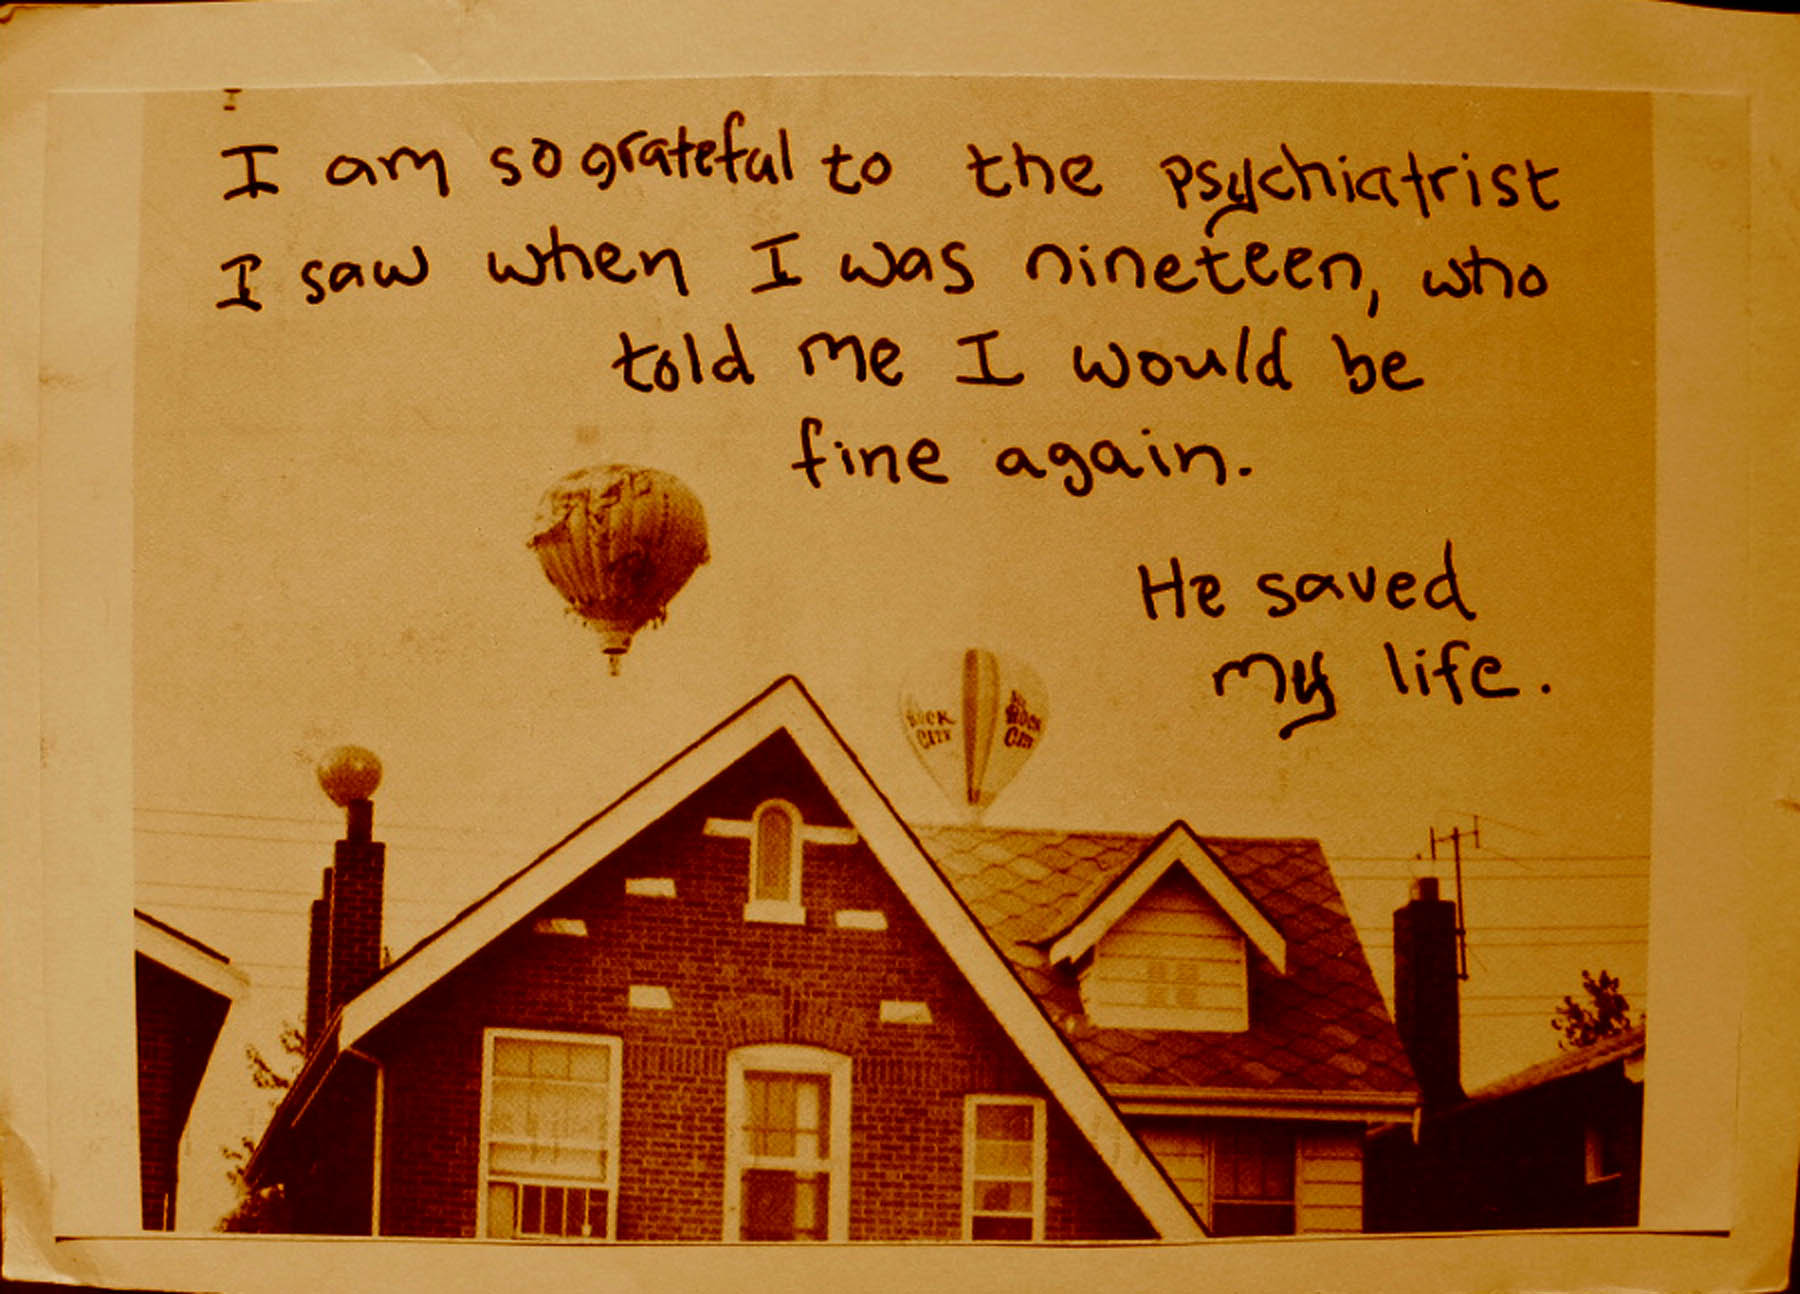 I am so grateful to the psychiatrist
I saw when I was nineteen, who
told me I would be
fine again.
He saved
my life.
ROCK
CITY
ROCK